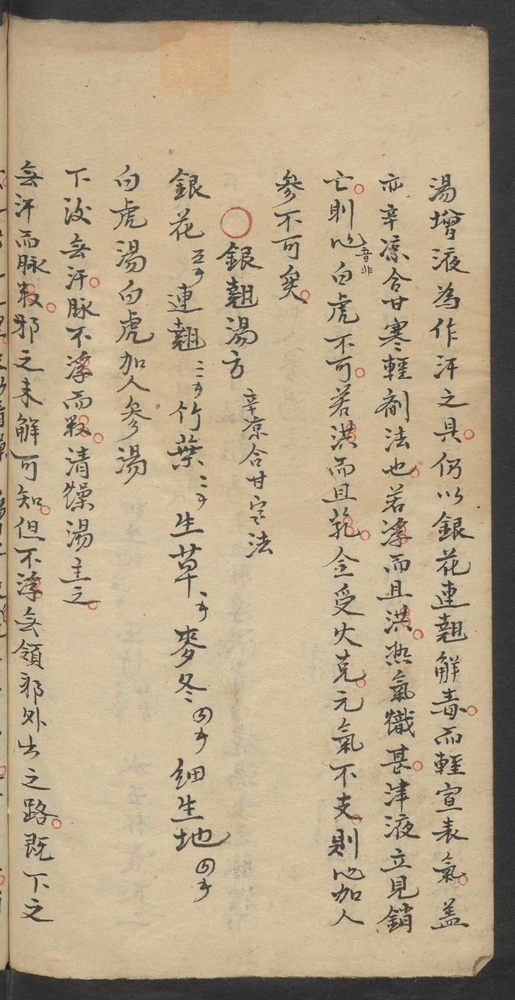 湯增液為作汗之具仍以銀花連翹解毒而輕宣表氣蓋
亦辛凉合甘寒輕劑法也若浮而且洪熱氣熾甚津液立見銷
亡則心白虎不可若洪而且芤金受火克元氣不支則心加人
音非
參不可矣
銀翹湯方 辛凉合甘寒法
銀花五錢 連翹三錢 竹葉二錢 生草一錢 麥冬四錢 細生地四錢
白虎湯白虎加人參湯
下後無汗脉不浮而數清燥湯主之
無汗而脉數邪之未解可知但不浮無領邪外出之路既下之